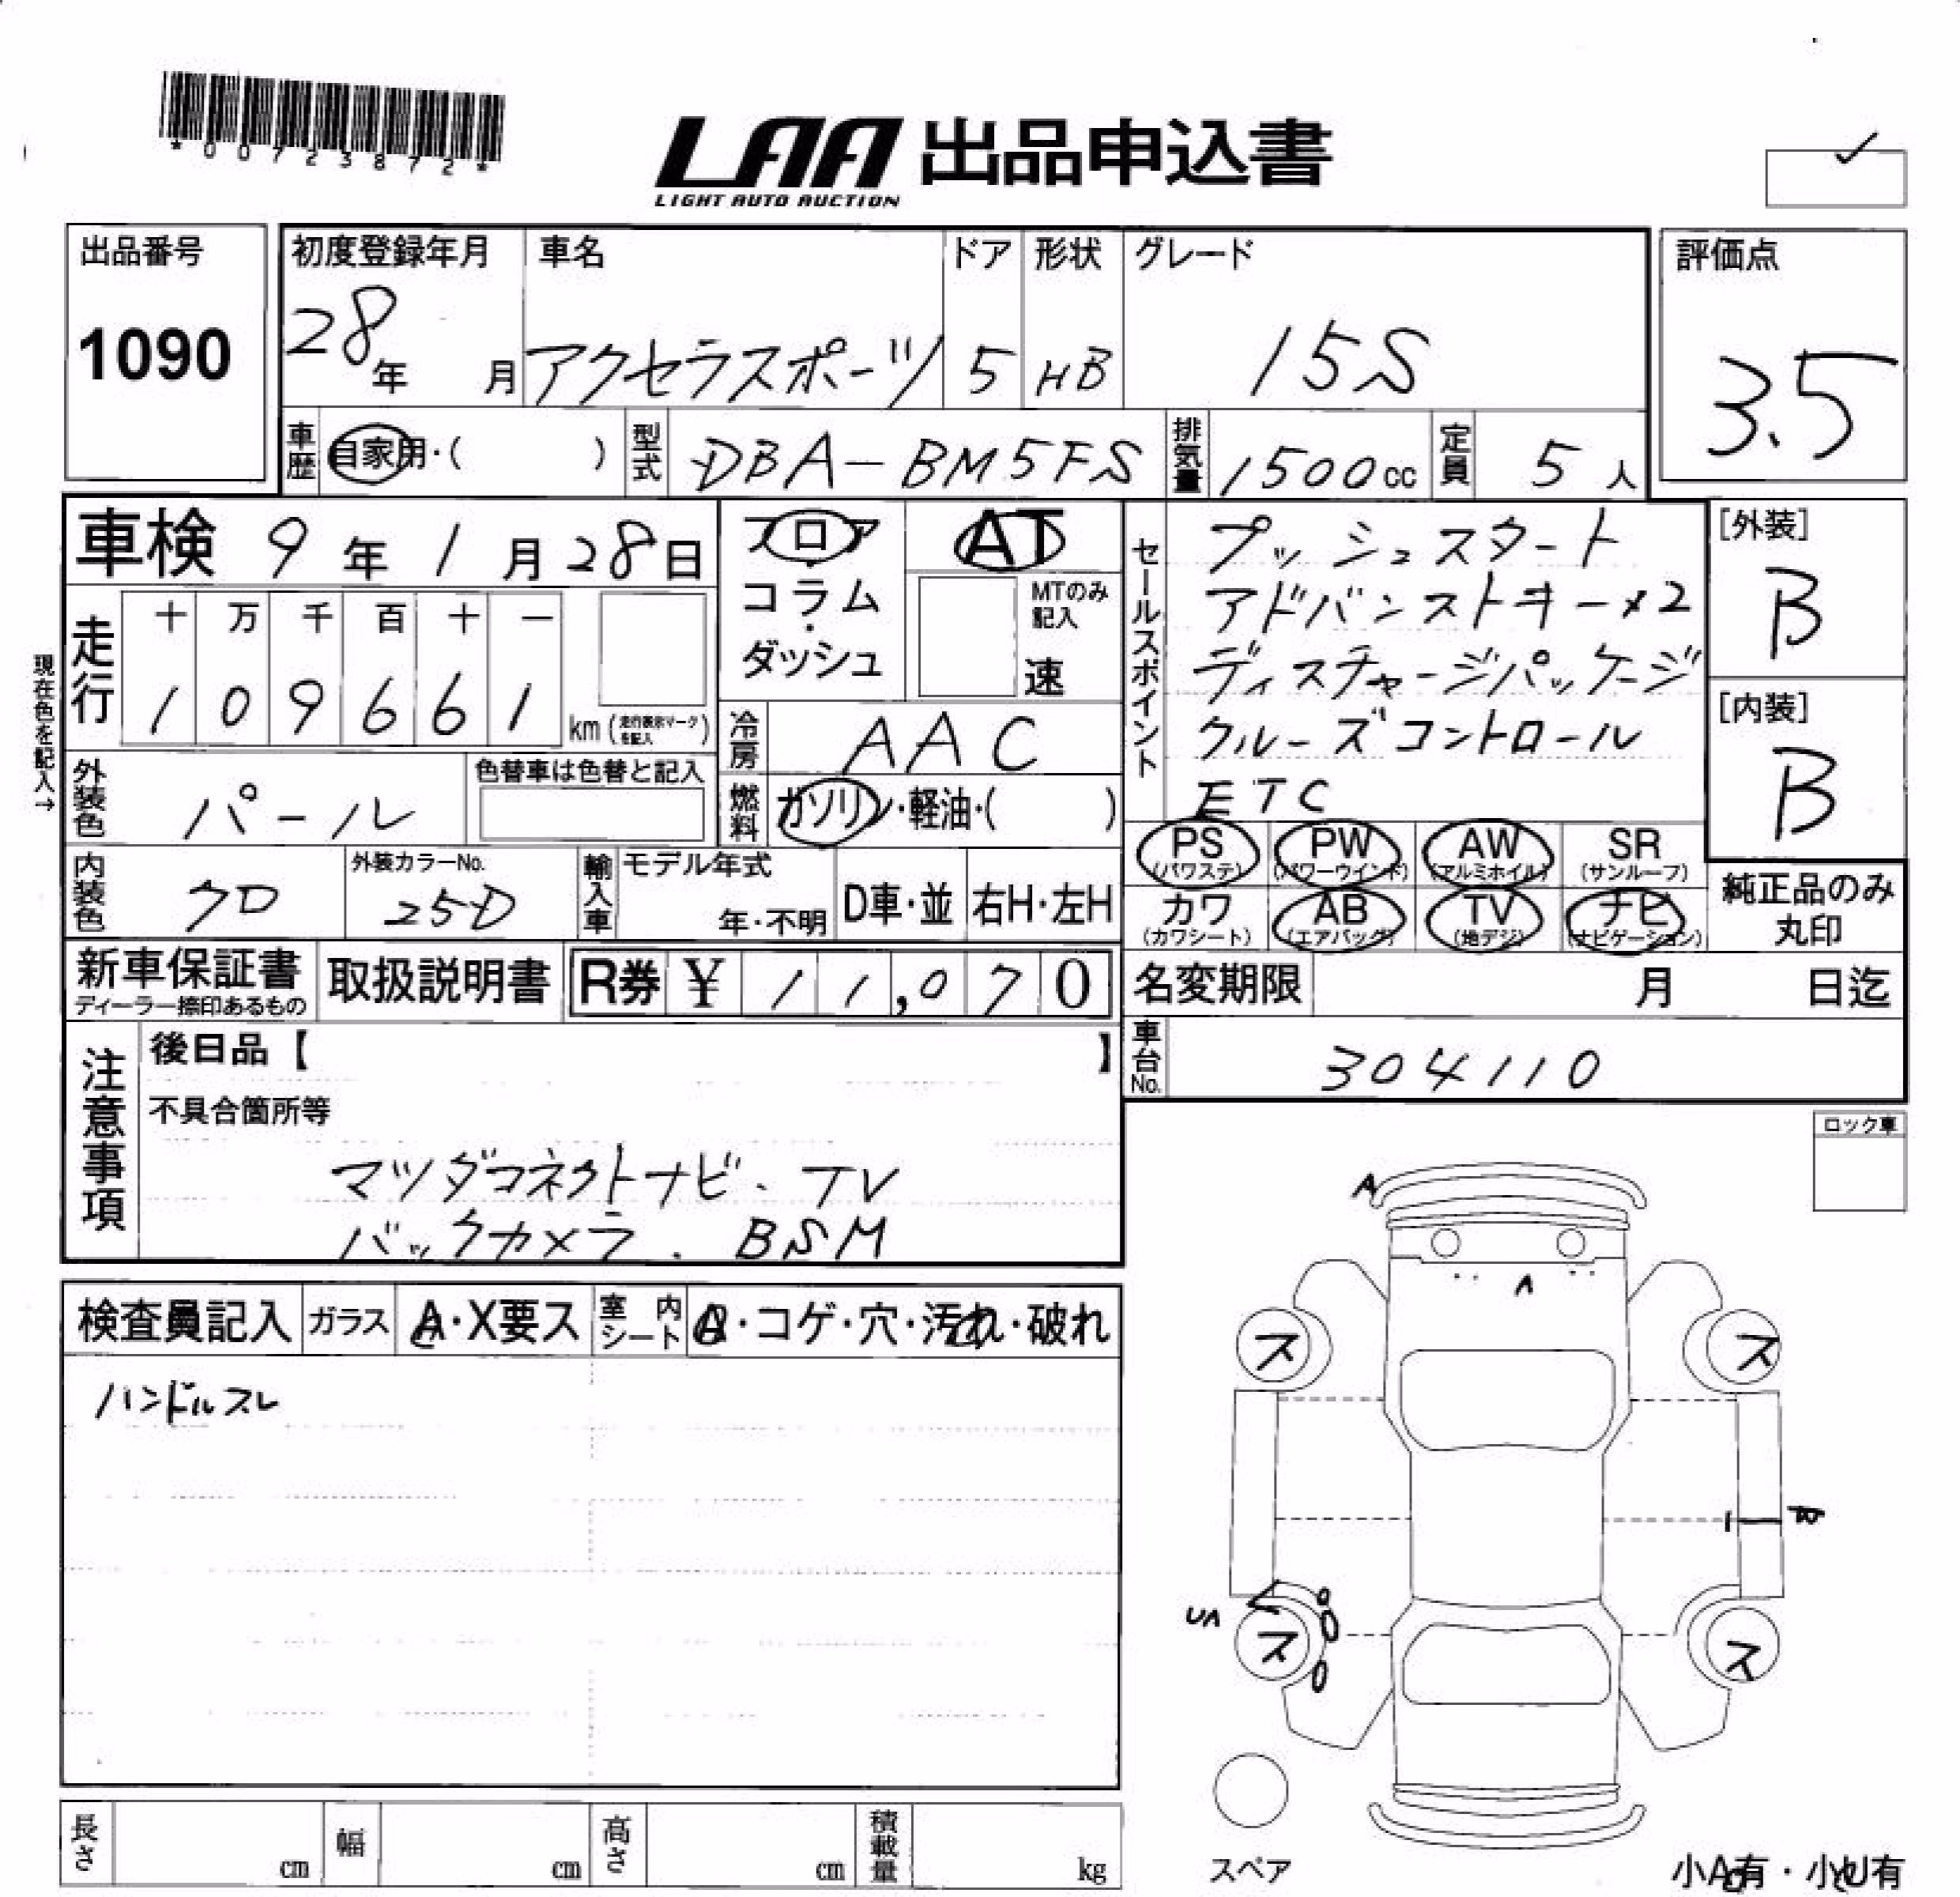 *00723872*
LAA 出品申込書
LIGHT AUTO AUCTION
出品番号
1090
初度登録年月
28年 月
車名
アクセラスポーツ
ドア
5
形状
HB
グレード
15S
評価点
3.5
車歴 自家用・( )
型式 DBA-BM5FS
排気量 1500cc
定員 5人
車検 9年1月28日
フロア
コラム
・
ダッシュ
AT
MTのみ記入
速
セールスポイント
プッシュスタート
アドバンストキー×2
ディスチャージパッケージ
クルーズコントロール
ETC
[外装]
B
[内装]
B
現在色を記入→
走行
十 万 千 百 十 一
1 0 9 6 6 1
km (走行表示マークを記入)
冷房 AAC
外装色 パール
色替車は色替と記入
燃料 ガソリン・軽油・( )
PS (パワステ)
PW (パワーウインド)
AW (アルミホイル)
SR (サンルーフ)
カワ (カワシート)
AB (エアバッグ)
TV (地デジ)
ナビ (ナビゲーション)
純正品のみ
丸印
内装色 クロ
外装カラーNo.
25D
輸入車
モデル年式
年・不明
D車・並
右H・左H
新車保証書
ディーラー捺印あるもの
取扱説明書
R券 ¥ 11,070
名変期限 月 日迄
車台No. 304110
注意事項
後日品【 】
不具合箇所等
マツダコネクトナビ. TV
バックカメラ. BSM
ロック車
検査員記入
ガラス A・X要ス
室内シート
・コゲ・穴・汚れ・破れ
ハンドルスレ
A
A
ス
ス
UA
ス
ス
スペア
長さ cm
幅 cm
高さ cm
積載量 kg
小A有・小U有